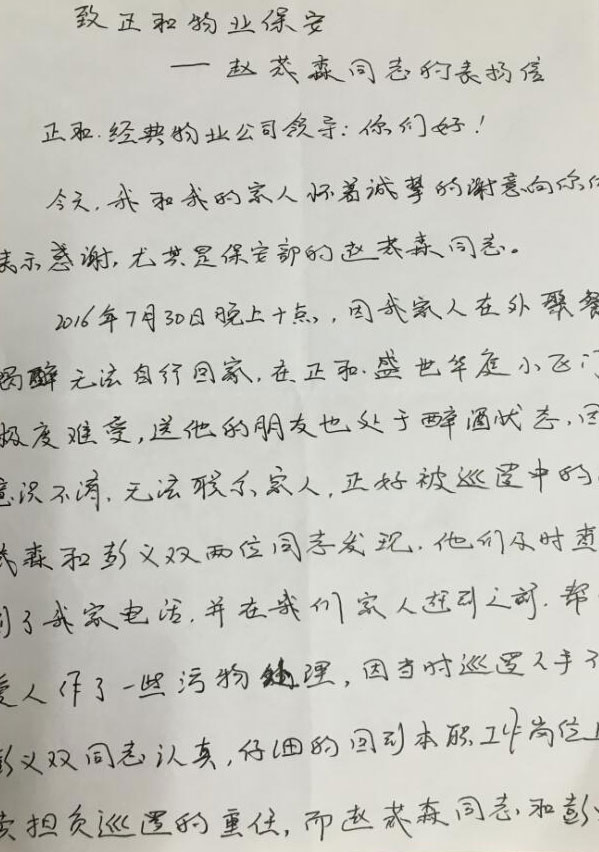 致正和物业保安
——赵茂森同志的表扬信
正和.经典物业公司领导:你们好!
今天,我和我的家人怀着诚挚的谢意向你们
表示感谢,尤其是保安部的赵茂森同志。
2016年7月30日晚上十点,因我家人在外聚餐
喝醉无法自行回家,在正和.盛世华庭小区门
极度难受,送他的朋友也处于醉酒状态,因
意识不清,无法联系家人,正好被巡逻中的
茂森和彭义双两位同志发现.他们及时查
到了我家电话,并在我们家人赶到之前.帮
爱人作了一些污物处理,因当时巡逻人手不
彭义双同志认真,仔细的回到本职工作岗位
续担负巡逻的重任,而赵茂森同志和彭